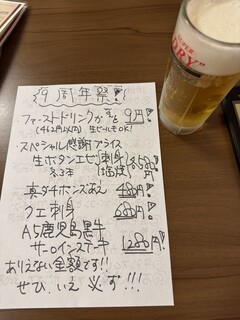 9周年祭!!
ファーストドリンクが なんと 9円!
(462円以内) 生ビールもOK!
・スペシャル感謝プライス
生ボタンエビ 刺身 塩焼
各3本 円!
真ダチホンズあえ 480円!
クエ刺身 680円!
A5鹿児島黒牛
サーロインステーキ 1280円!
ありえない金額です!!
ぜひ、いえ 必ず!!!
SUPER
DRY